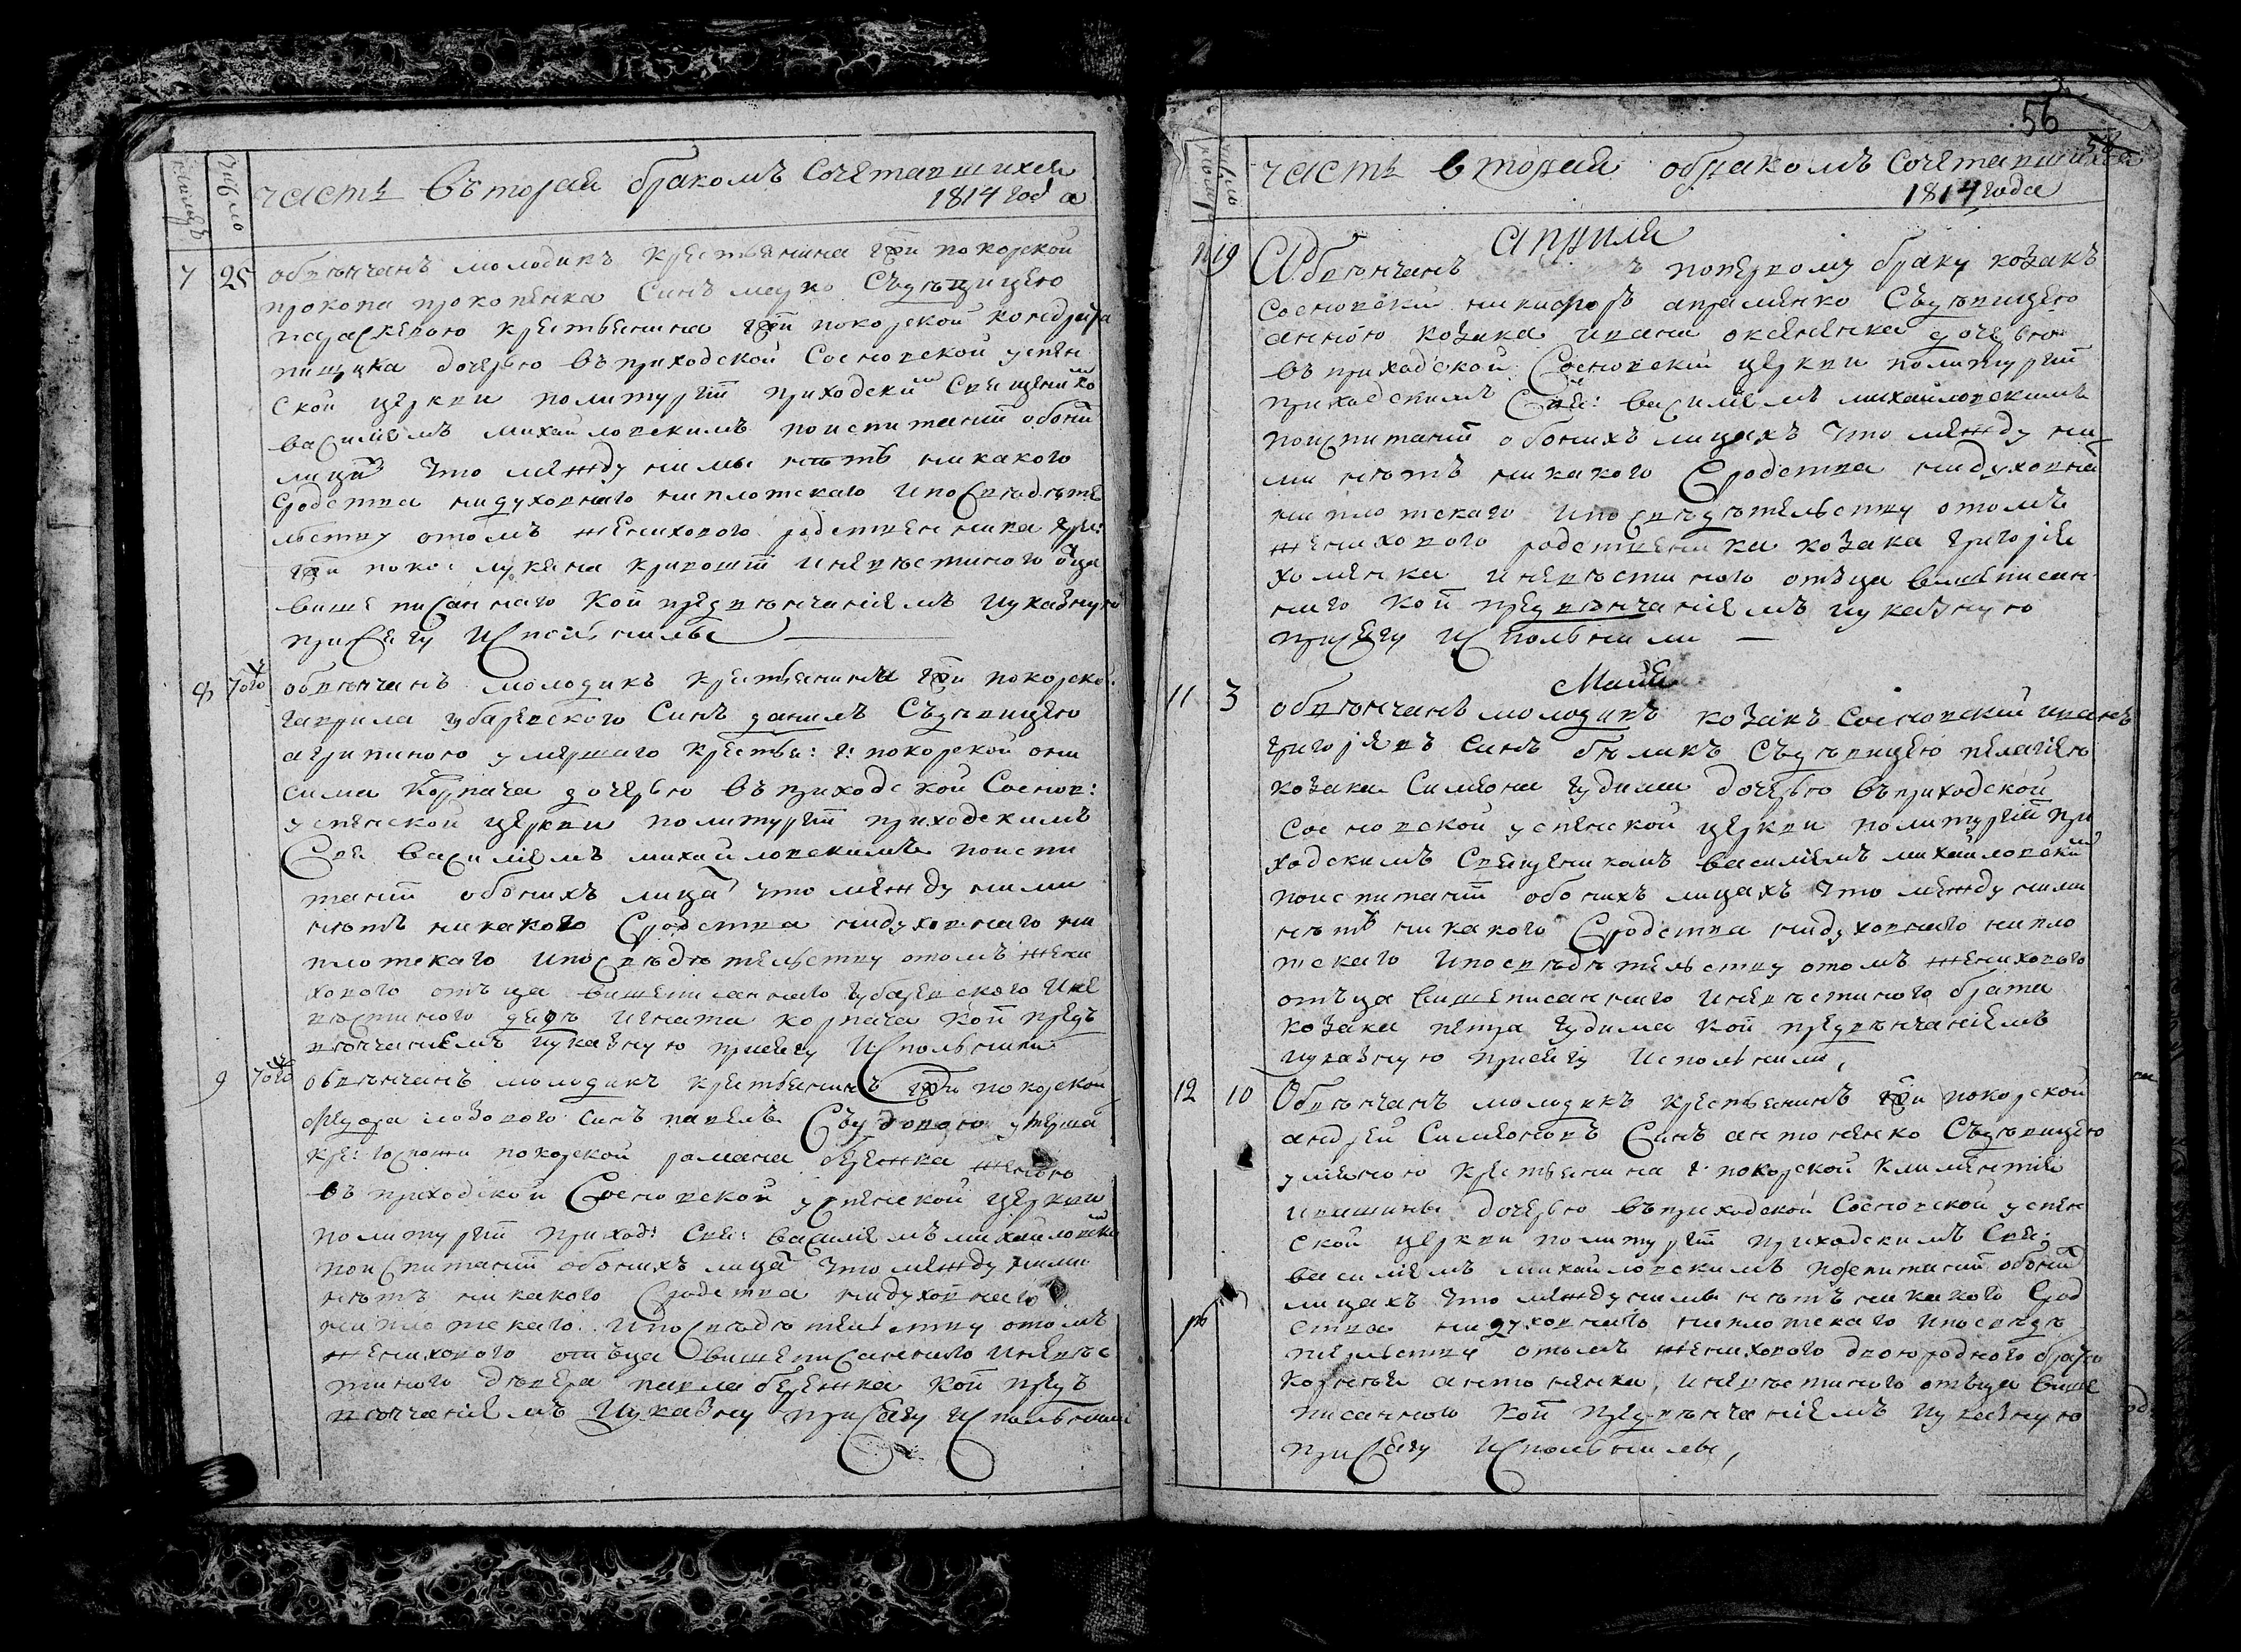 часть въторая бракомъ сочетавшихся
1814 года
7 25 обвѣнчанъ молодикъ крестьянина гпжи покорской
прокопа прокопенка синъ марко съдѣвицею
параскевою крестьянина гпжи покорской кондрата
пищика дочерью въприходской Сосновской успен
ской церкви политургіи приходским Священико
василіемъ михайловскимъ поиспитаніи обоих
лицъ что между ними нѣтъ никакого
Сродства нидуховнаго ниплотскаго ипосвѣдѣте
льству отомъ женихового родственника кре:
гпжи поко: лукяна кривошіи иневѣстиного оца
вишеписаннаго кои предвѣнчаніемъ иуказную
присягу исполнили
8 того обвѣнчанъ молодикъ крестьянина гпжи покорско:
гаврила губаревского Синъ данилъ Съдѣвицею
агрипиною умершаго крестья: г: покорской они
сима корпача дочерью въприходской Соснов:
успенской церкви политургіи приходскимъ
Свя василіемъ михайловскимъ поиспи
таніи обоихъ лица что между ними
нѣтъ никакого Сродства нидуховнаго ни
плотскаго ипосвѣдѣтельству отомъ жени
хового отъца вишеписаннаго губаревского ине
вѣстиного дядѣ игната корпача кои предъ
вѣнчаніемъ иуказную присягу исполнили
9 того обвѣнчанъ молодикъ крестьянинъ гпжи покорской
федора лозового синъ павелъ Съудовою умерша
кре: госпожи покорской романа бережка женою
въ приходской Сосновской успенской церкви
политургіи приход: свя: василіемъ михайловски
поиспитаніи обоихъ лица что между ними
нѣтъ никакого Сродства нидуховнаго
ниплотскаго ипосвѣдѣтельству отомъ
женихового отъца вишеписаннаго иневѣс
тиного дѣвера павла бережка кои предъ
вѣнчаніемъ иуказну присягу исполнили
56
часть вторая обракомъ сочетавшихся
1814 года
априля
19 Обвѣнчанъ попервому браку козакъ
сосновскій никифоръ авраменко съдѣвицею
анною козака ивана оксененка дочерью
въприходской Сосновскій церкви политургіи
приходскимъ Свя: василіемъ михайловскимъ
поиспитаніи обоихъ лицахъ что между ни
ми нѣтъ никакого Сродства нидуховна
ниплотскаго ипосвѣдѣтельству отомъ
женихового родственика козака григорія
хоменка иневѣстиного отъца вишеписан
наго кои предвѣнчаніемъ иуказную
присягу исполънили
Маія
11 3 обвѣнчанъ молодикъ козакъ сосновскій иванъ
григоріевъ синъ бѣликъ съдѣвицею пелагіею
козака Симеона гудими дочерью въприходской
сосновской успенской церкви политургіи при
ходскимъ священикомъ василіемъ михайловски
поиспитаніи обоихъ лицахъ что между ними
нѣтъ никакого Сродства нидуховнаго нипло
тскаго ипосвѣдѣтельству отомъ женихового
отъца вишеписаннаго иневѣстиного брата
козака петра гудима кои предвѣнчаніемъ
иуказную присягу исполнили,
12 10 Обвѣнчанъ молодикъ крестьянинъ гпжи покорской
андрей Симеоновъ Синъ антоненко съдѣвицею
уліяною крестьянина г: покорской климентія
ивашини дочерью въприходской Сосновской успен
ской церкви политургіи приходскимъ Свя:
василіемъ михайловскимъ поспитаніи обоих
лицахъ что между ними нѣтъ никакого Срод
ства нидуховнаго ниплотскаго ипосвѣдѣ
тельству отомъ женихового двоюродного брата
корнѣя антоненка, иневѣстиного отъца више
писанного кои предвѣнчаніемъ иуказную
присягу исполънили,